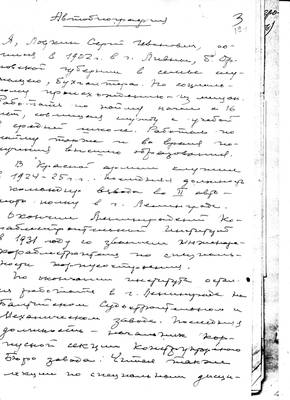 Автобиография
3
Я, Лоцкин Сергей Иванович, ро-
дился в 1902 г. в г. Ливны, б. Ор-
ловской губернии в семье слу-
жащего, бухгалтера. По социаль-
ному происхождению из мещан
Работать по найму начал с 16
лет, совмещая службу с учебой
в средней школе. Работал по
найму также и во время по-
лучения высшего образования.
В Красной армии служил
в 1924-25 г.г. последняя должность
командир взвода во II
полку в г. Ленинграде.
Окончил Ленинградский Ко-
раблестроительный Институт
в 1931 году со званием инженера
кораблестроителя по специаль-
ности корпусостроения.
По окончании института остал-
ся работать в г. Ленинграде на
Балтийском Судостроительном и
Механическом заводе. Последняя
должность – начальник кор-
пусной секции Конструкторского
Бюро завода. Читал также
лекции по специальным дисци-